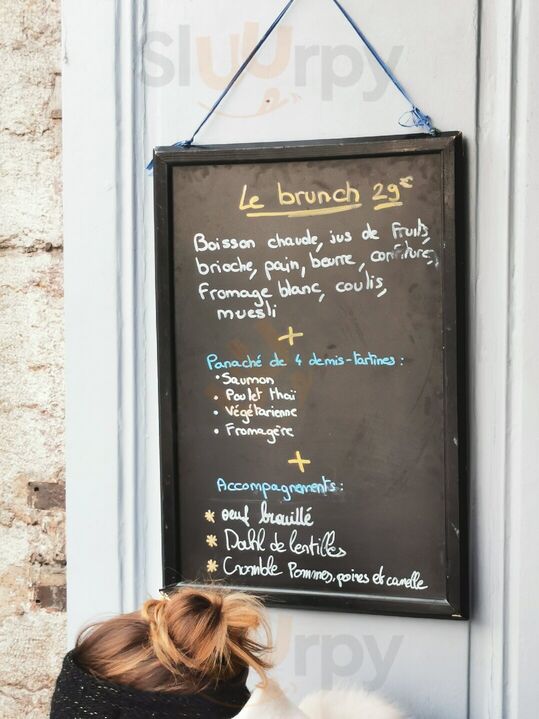 Sluurpy
Le brunch 29€
Boisson chaude, jus de fruits,
brioche, pain, beurre, confitures,
fromage blanc, coulis,
muesli
+
Panaché de 4 demis-tartines :
• Saumon
• Poulet thaï
• Végétarienne
• Fromagère
+
Accompagnements :
* oeuf brouillé
* Dahl de lentilles
* Crumble Pommes, poires et canelle
Sluurpy